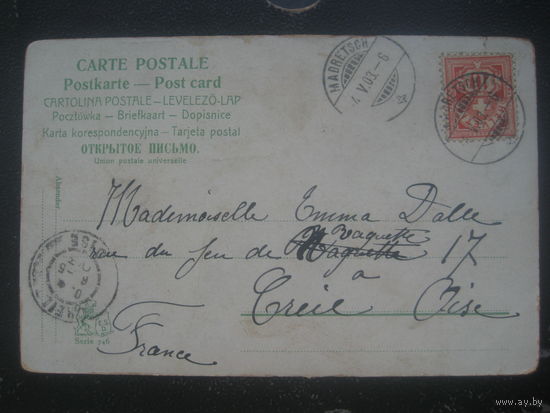 CARTE POSTALE
Postkarte — Post card
CARTOLINA POSTALE – LEVELEZÖ-LAP
Pocztówka – Briefkaart – Dopisnice
Karta korespondencyjna – Tarjeta postal
ОТКРЫТОЕ ПИСЬМО.
Union postale universelle
MADRETSCH
7. V. 03. – 6
Absender
Mademoiselle Emma Dalle
rue du jeu de Raquette 17
a
Creil Oise
France
Serie 746
www.ay.by